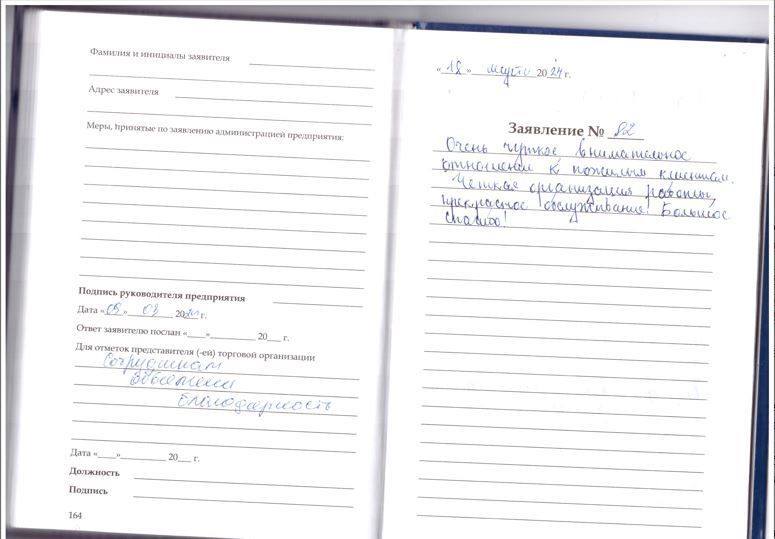 Фамилия и инициалы заявителя
Адрес заявителя
Меры, принятые по заявлению администрацией предприятия:
Подпись руководителя предприятия
Дата «09» 03 2024 г.
Ответ заявителю послан «____»__________ 20___ г.
Для отметок представителя (-ей) торговой организации
Сотрудникам
объявлена
благодарность
Дата «____»__________ 20___ г.
Должность
Подпись
164
«18» марта 2024 г.
Заявление № 82
Очень чуткое внимательное
отношение к пожилым клиентам.
Четкая организация работы,
прекрасное обслуживание! Большое
спасибо!